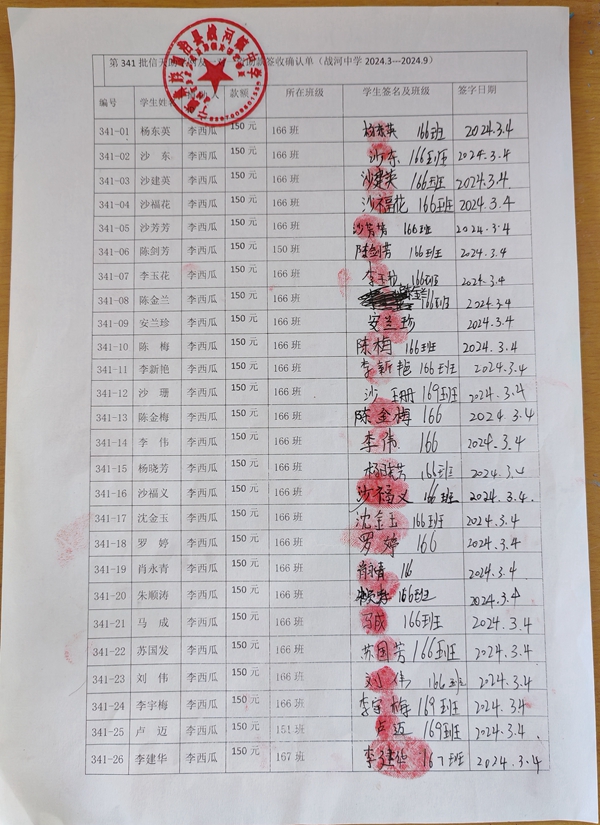 第 341 批信天 签收确认单（战河中学 2024.3---2024.9）
编号 学生姓名 人 款额 所在班级 学生签名及班级 签字日期
341-01 杨东英 李西瓜 150 元 166 班 杨东英 166班 2024.3.4
341-02 沙 东 李西瓜 150 元 166 班 沙东 166班 2024.3.4
341-03 沙建英 李西瓜 150 元 166 班 沙建英 166班 2024.3.4
341-04 沙福花 李西瓜 150 元 166 班 沙福花 166班 2024.3.4
341-05 沙芳芳 李西瓜 150 元 166 班 沙芳芳 166班 2024.3.4
341-06 陈剑芳 李西瓜 150 元 150 班 陈剑芳 166班 2024.3.4
341-07 李玉花 李西瓜 150 元 166 班 李玉花 166班 2024.3.4
341-08 陈金兰 李西瓜 150 元 166 班 陈金兰 166班 2024.3.4
341-09 安兰珍 李西瓜 150 元 166 班 安兰珍 2024.3.4
341-10 陈 梅 李西瓜 150 元 166 班 陈梅 166班 2024.3.4
341-11 李新艳 李西瓜 150 元 166 班 李新艳 166班 2024.3.4
341-12 沙 珊 李西瓜 150 元 166 班 沙珊 169班 2024.3.4
341-13 陈金梅 李西瓜 150 元 166 班 陈金梅 166 2024.3.4
341-14 李 伟 李西瓜 150 元 166 班 李伟 166 2024.3.4
341-15 杨晓芳 李西瓜 150 元 166 班 杨晓芳 166班 2024.3.4
341-16 沙福义 李西瓜 150 元 166 班 沙福义 166班 2024.3.4.
341-17 沈金玉 李西瓜 150 元 166 班 沈金玉 166班 2024.3.4
341-18 罗 婷 李西瓜 150 元 166 班 罗婷 166 2024.3.4
341-19 肖永青 李西瓜 150 元 166 班 16 2024.3.4
341-20 朱顺涛 李西瓜 150 元 166 班 166班 2024.3.4
341-21 马 成 李西瓜 150 元 166 班 马成 166班 2024.3.4
341-22 苏国发 李西瓜 150 元 166 班 苏国芳 166班 2024.3.4
341-23 刘 伟 李西瓜 150 元 166 班 刘伟 166班 2024.3.4
341-24 李字梅 李西瓜 150 元 166 班 李字梅 169班 2024.3.4
341-25 卢 迈 李西瓜 150 元 151 班 卢迈 169班 2024.3.4.
341-26 李建华 李西瓜 150 元 167 班 李建华 167班 2024.3.4